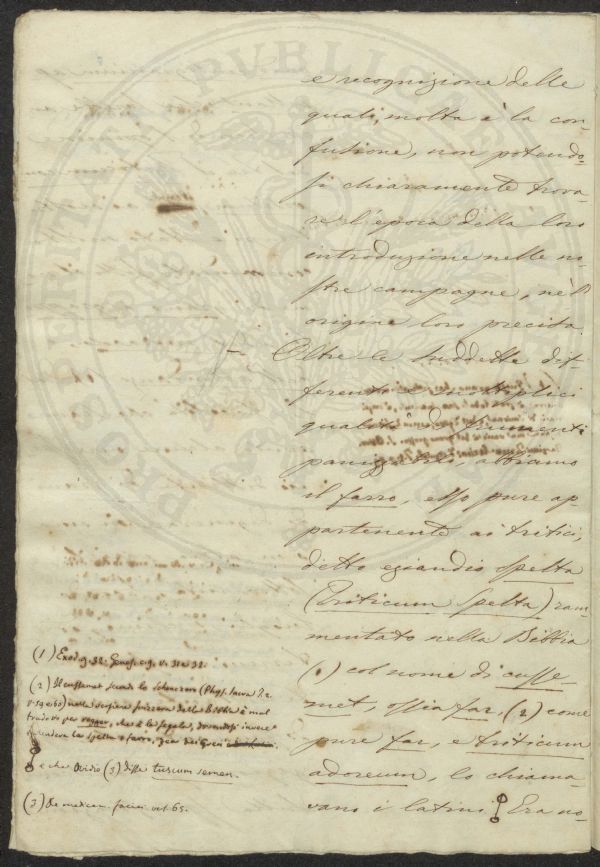 e recognizione delle
quali, molta è la con-
fusione, non potendo-
si chiaramente trova-
re l'epoca della loro
introduzione nelle no-
stre campagne, nè l'
origine loro precisa.
Oltre le suddette dif-
ferenti e moltiplici
qualità di frumenti
panizzabili, abbiamo
il farro, esso pure ap-
partenente ai tritici,
detto eziandio spelta
(Triticum Spelta) ram-
mentato nella Bibbia
(1) col nome di cusse-
met, ossia far, (2) come
pure far, e triticum
adoreum, lo chiama-
vano i latini. Era no-
(1) Exod. 9. 32.
(2) Il cussemet secondo lo Scheuzero (Phys. sacra
nella versione svizzera della Bibbia è mal
tradotto per roggen, che è la segala, dovendosi invece
intendere la spelta o farro,
e che Ovidio (3) disse tuscum semen.
(3) De medicam. faciei vers. 65.
PROSPERITATI PVBLICAE AVGENDAE